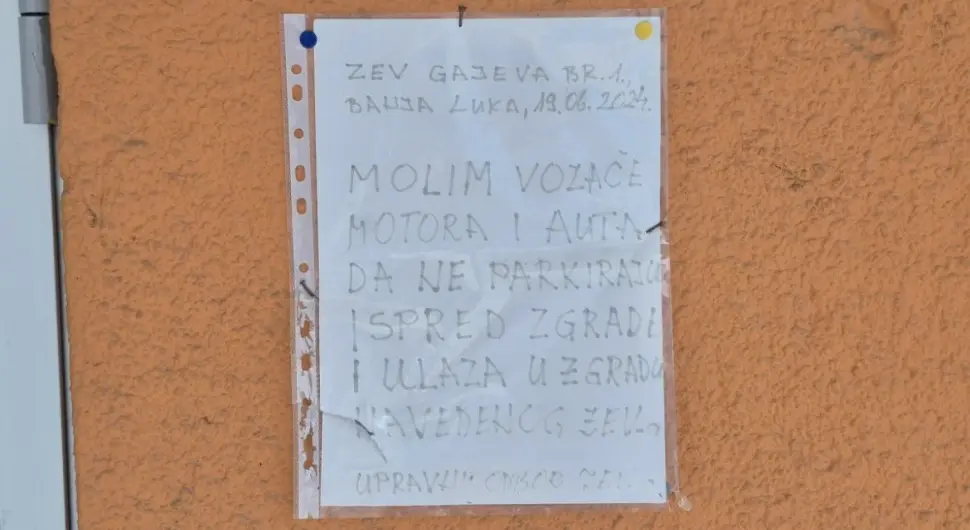 ZEV GAJEVA BR. 1.,
BANJA LUKA, 19.06.2024.
MOLIM VOZAČE
MOTORA I AUTA
DA NE PARKIRAJU
ISPRED ZGRADE
I ULAZA U ZGRADU
NAVEDENOG ZEV-a
UPRAVNI ODBOR ZEV-a